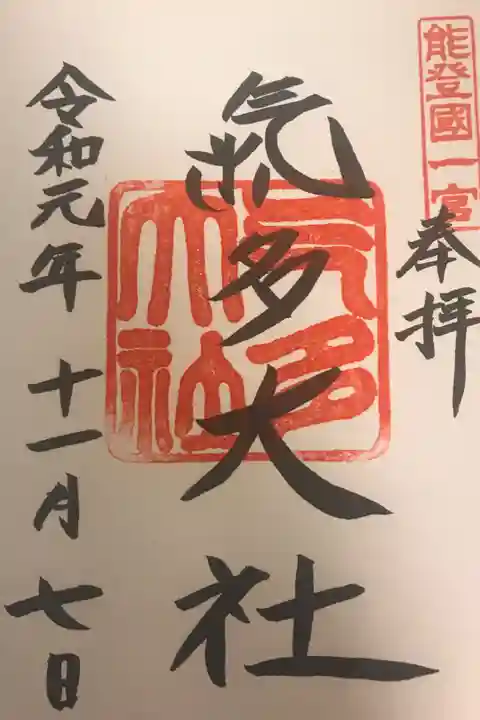 能登國一宮
奉拝
氣多大社
气多大社
令和元年 十一月 七日